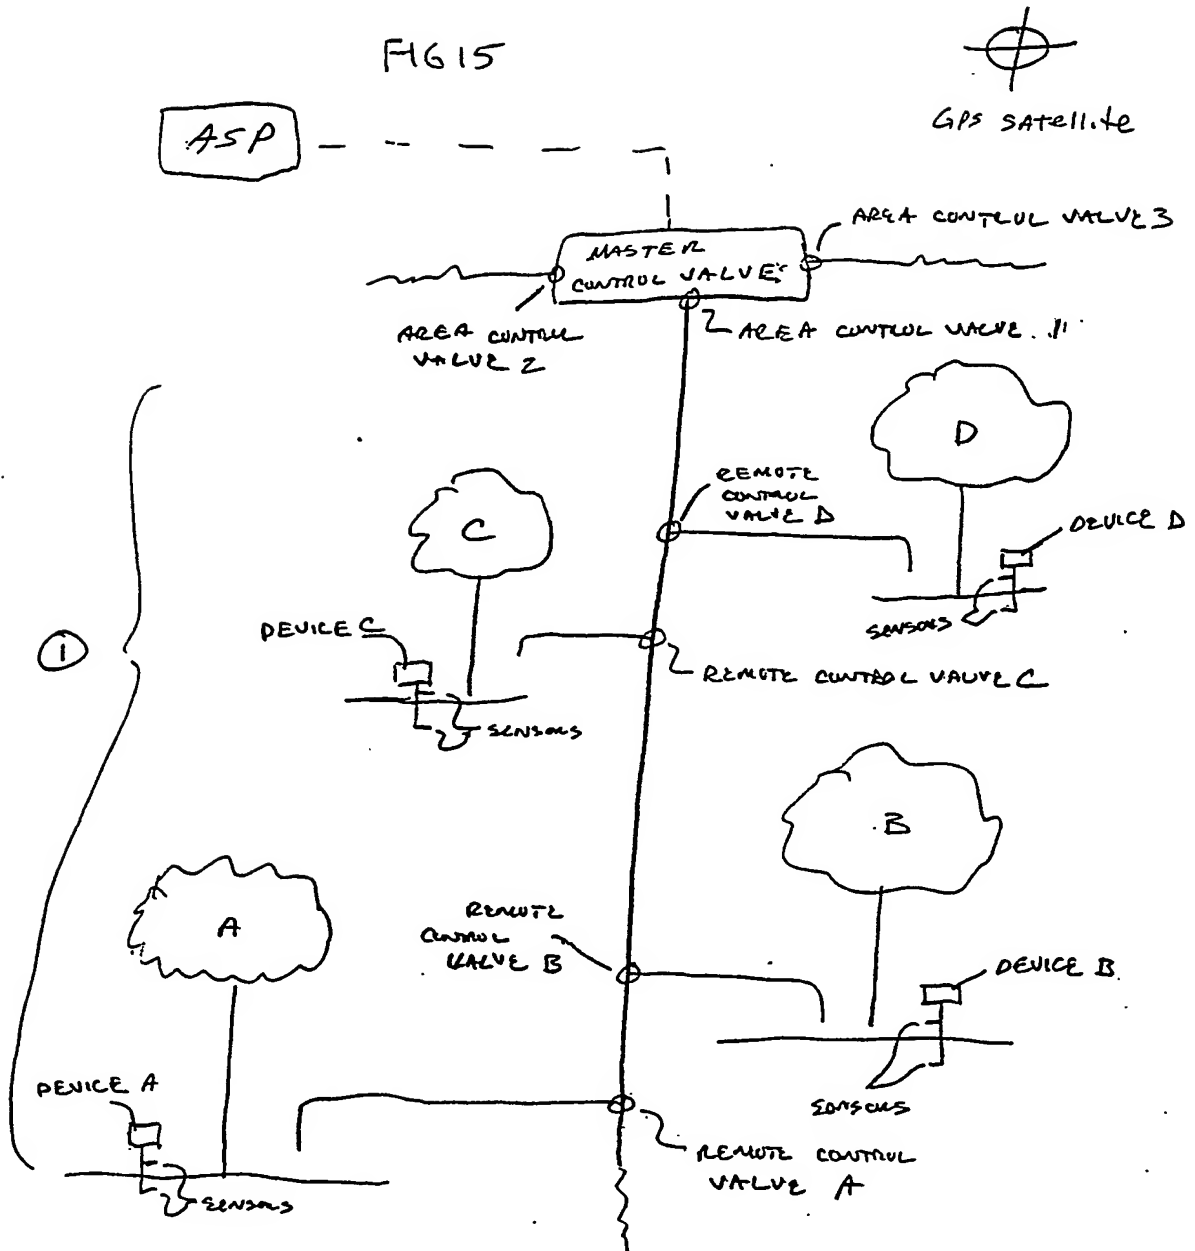 FIG 15
ASP
GPS SATELLITE
AREA CONTROL VALVE 3
MASTER
CONTROL VALVE
AREA CONTROL
VALVE 2
AREA CONTROL VALVE 1
D
REMOTE
CONTROL
VALVE D
C
DEVICE D
DEVICE C
SENSORS
1
REMOTE CONTROL VALVE C
SENSORS
B
A
REMOTE
CONTROL
VALVE B
DEVICE B
DEVICE A
SENSORS
REMOTE CONTROL
VALVE A
SENSORS